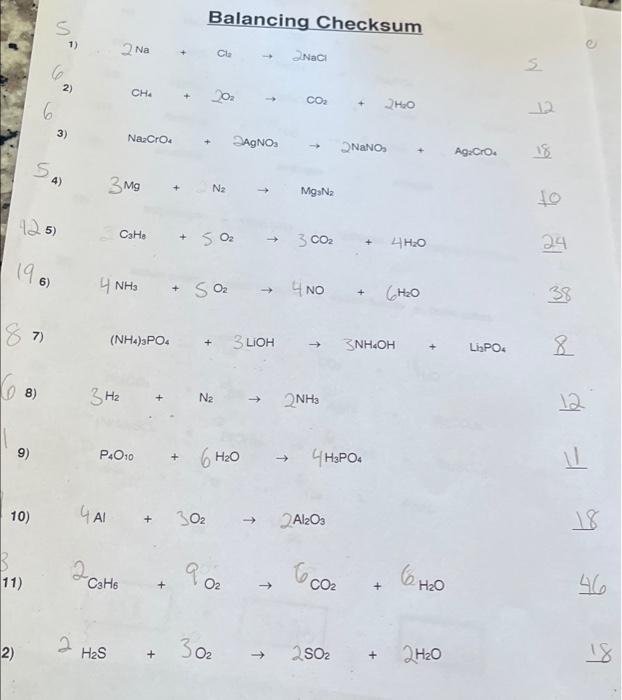 Balancing Checksum
5 1) 2 Na + Cl₂ → 2NaCl 5 e
6 2) CH₄ + 2O₂ → CO₂ + 2H₂O 12
6 3) Na₂CrO₄ + 2AgNO₃ → 2NaNO₃ + Ag₂CrO₄ 18
5 4) 3 Mg + N₂ → Mg₃N₂ 10
5) C₃H₈ + 5 O₂ → 3 CO₂ + 4H₂O 24
19 6) 4 NH₃ + 5 O₂ → 4 NO + 6H₂O 38
8 7) (NH₄)₃PO₄ + 3 LiOH → 3NH₄OH + Li₃PO₄ 8
6 8) 3 H₂ + N₂ → 2NH₃ 12
1 9) P₄O₁₀ + 6 H₂O → 4 H₃PO₄ 11
10) 4 Al + 3O₂ → 2Al₂O₃ 18
3 11) 2 C₃H₆ + 9 O₂ → 6 CO₂ + 6 H₂O 46
2) 2 H₂S + 3 O₂ → 2SO₂ + 2H₂O 18